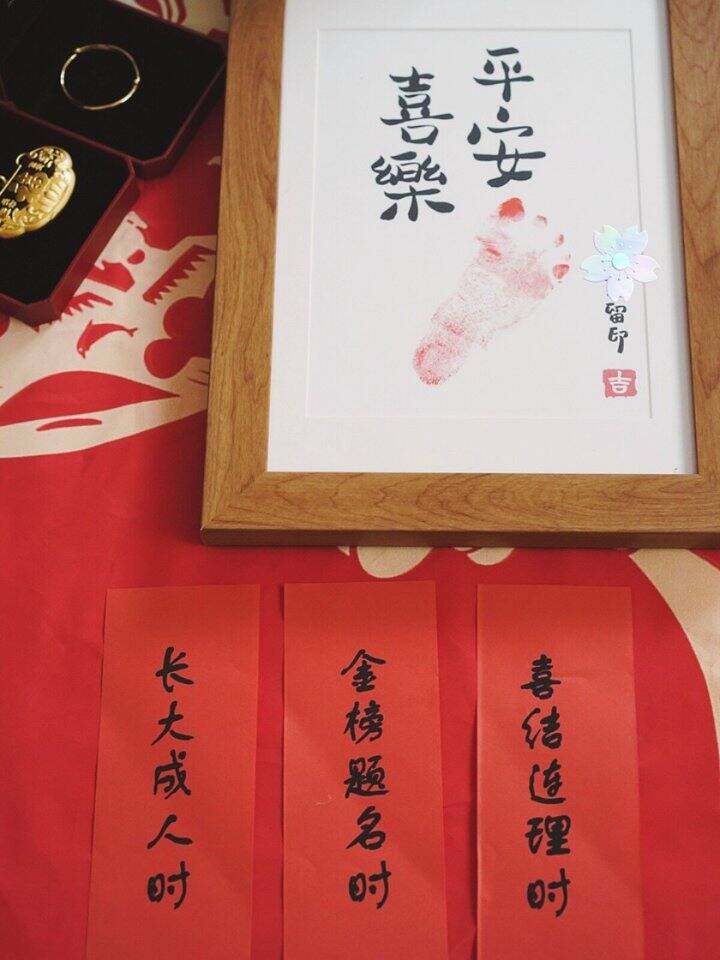 平安
喜樂
留印
吉
长大成人时
金榜题名时
喜结连理时